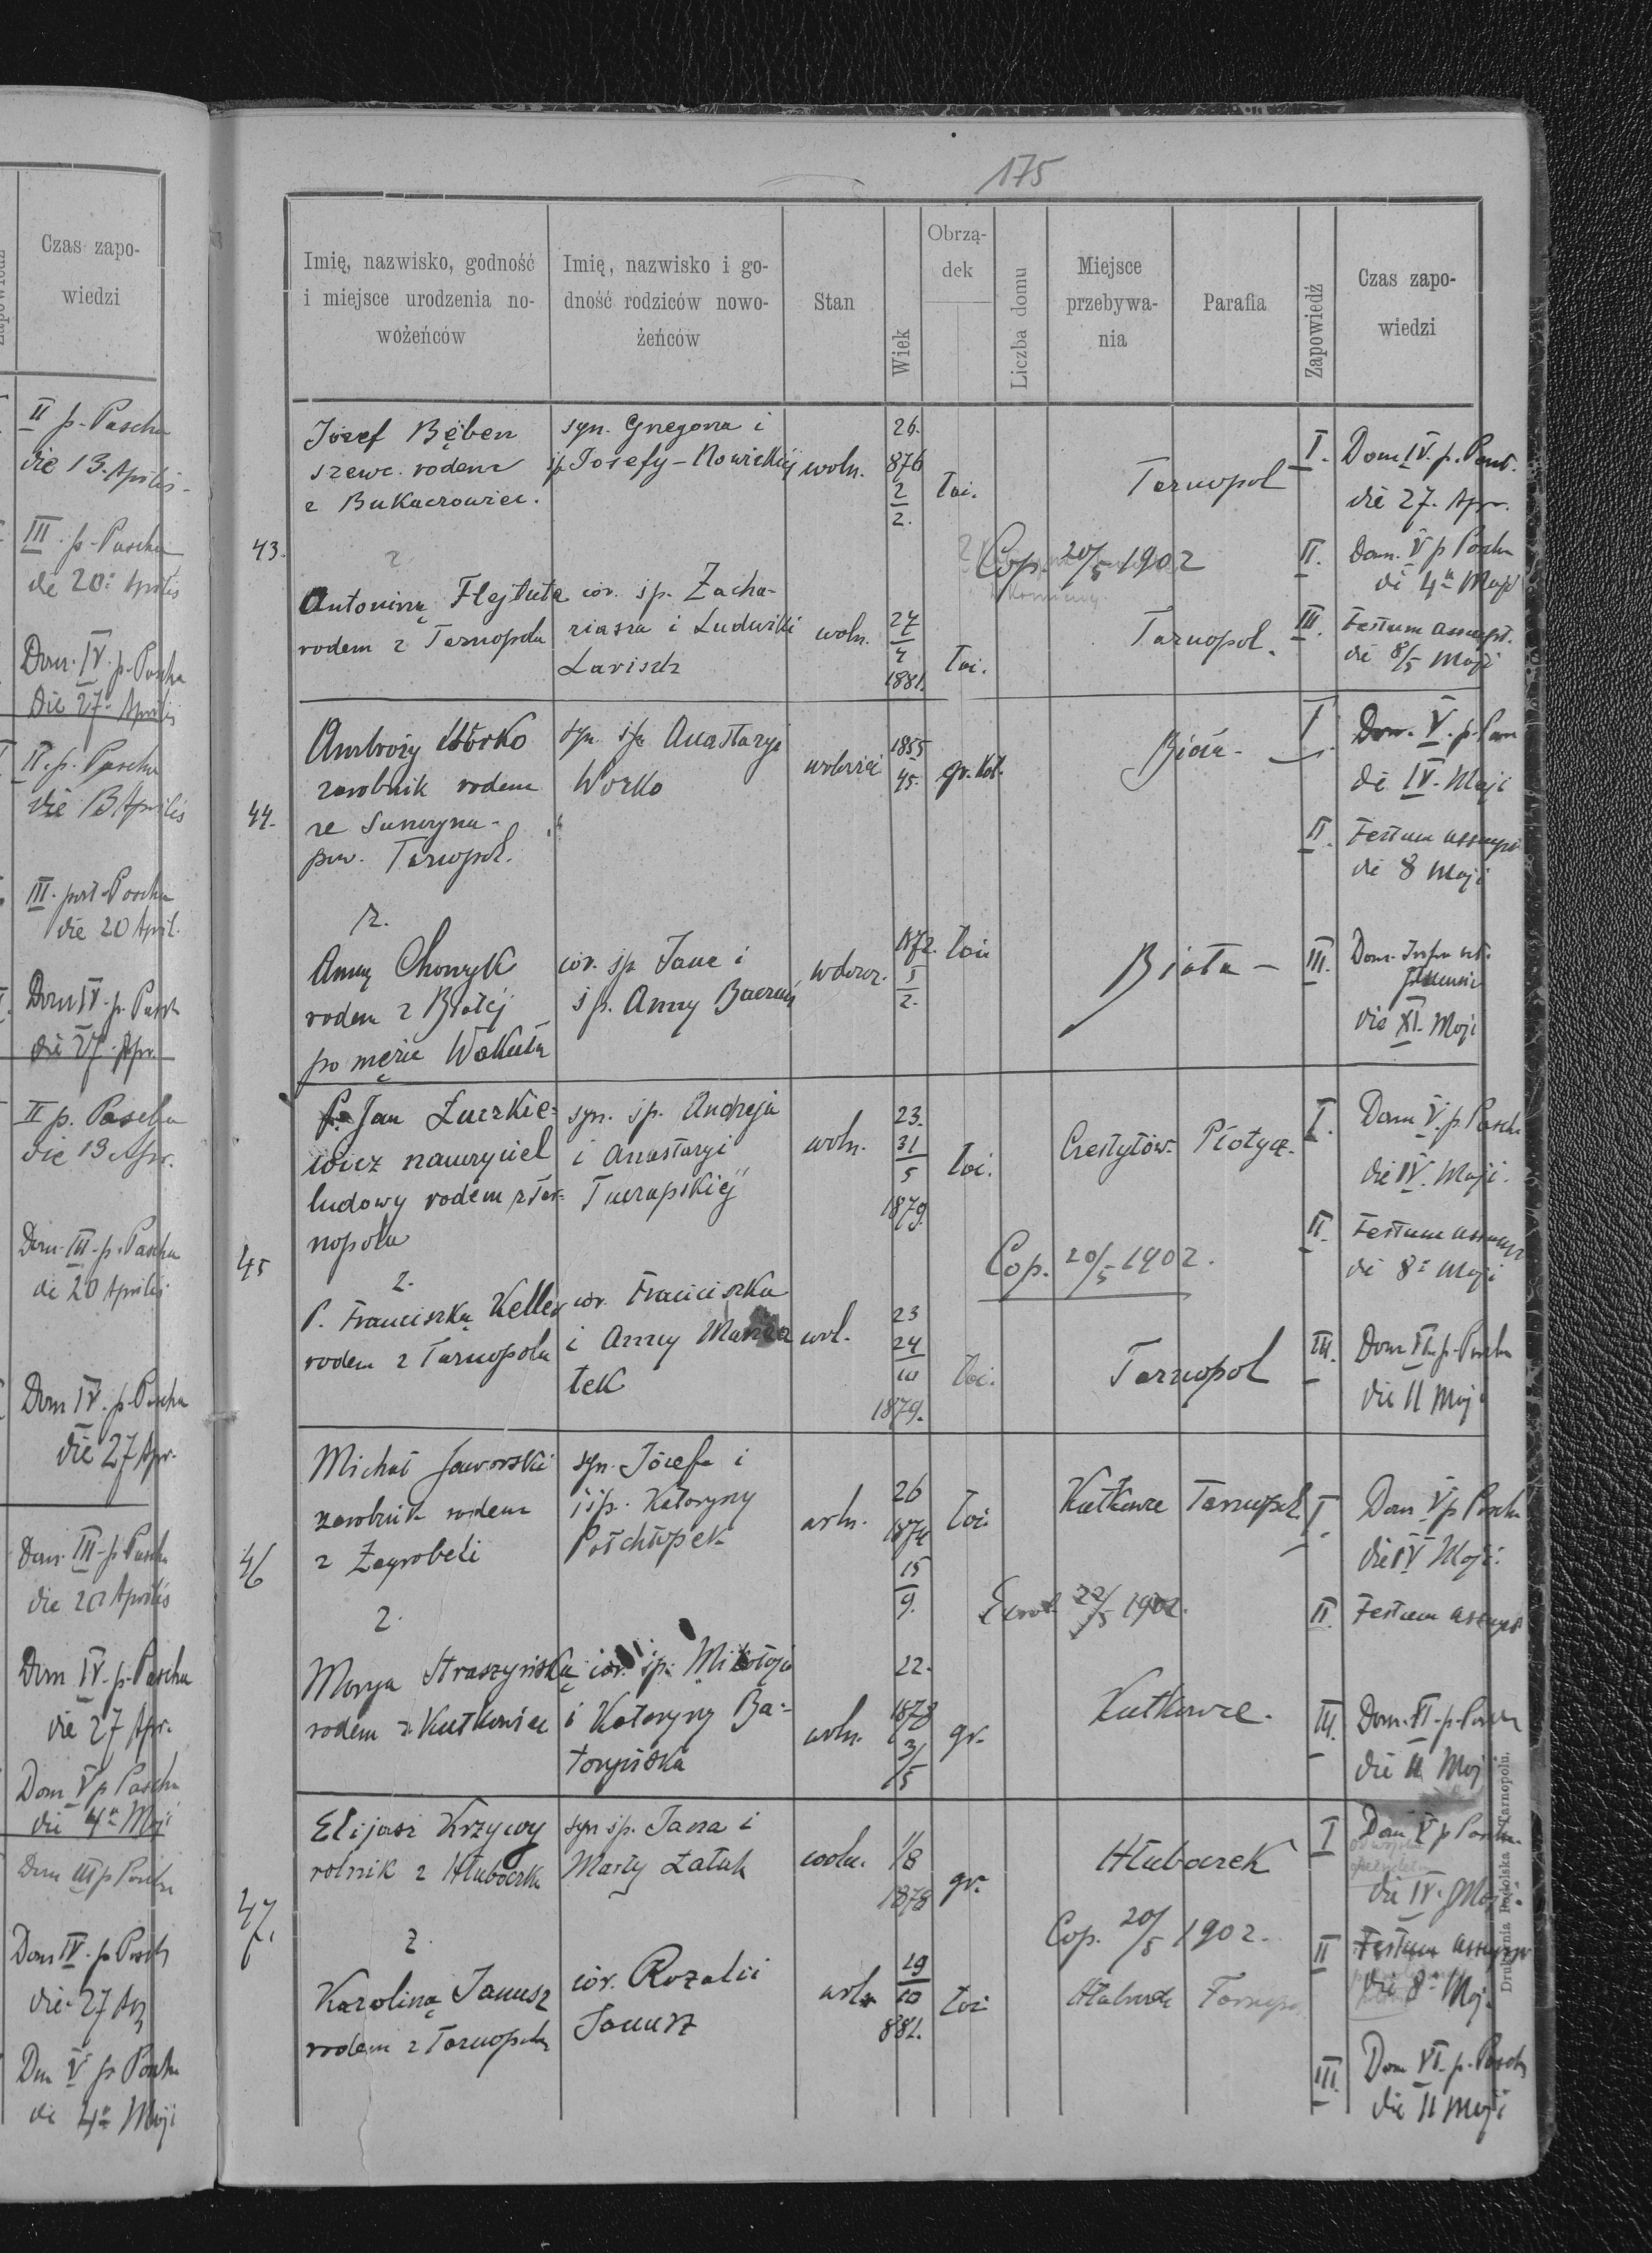 Czas zapo-
wiedzi
II p. Pascha
die 13. Aprilis
III. p. Pascha
die 20a Aprilis
Dom. IV. p. Pascha
die 27a Aprilis
II. p. Pascha
die 13 Aprilis
III. post Pascha
die 20 April.
Dom IV. p. Pasch
die 27. Apr.
II p. Pascha
die 13 Apr.
Dom. III. p. Pascha
die 20 Aprilis
Dom IV. p. Pascha
die 27 Apr.
Dom. III p. Pascha
die 20 Aprilis
Dom IV. p. Pascha
die 27 Apr.
Dom V p Pascha
die 4a Maji
Dom III p Pascha
Dom IV. p. Pasch
die 27 Apr
Dom V p Pascha
die 4a Maji
175
Imię, nazwisko, godność
i miejsce urodzenia no-
wożeńców
Imię, nazwisko i go-
dność rodziców nowo-
żeńców
Stan
Wiek
Obrzą-
dek
Liczba domu
Miejsce
przebywa-
nia
Parafia
Zapowiedź
Czas zapo-
wiedzi
43.
Józef Bęben
szewc. rodem
z Bukaczowiec.
syn. Gregora i
śp. Josefy - Nowickiej
woln.
26.
876
2
2.
łac.
Tarnopol
z
Cop. 20/5 1902
Antoniną Flejtuta
rodem z Tarnopola
cór. śp. Zacha-
riasza i Ludwiki
Larisch
woln.
27
4
1881.
łac.
Tarnopol.
I. Dom IV. p. Pent.
die 27. Apr.
II. Dom. V p Pascha
die 4a Maji
III. Festum assumpt.
die 8/5 Maji
44.
Ambroży Worko
zarobnik rodem
pow. Tarnopol.
syn. śp. Anastazyi
Worko
1855
45.
gr. kat.
z.
Anną Chomyk
rodem z Białej
po mężu Wakuła
cór. śp Jana i
śp. Anny
wdowa.
1872.
5
2.
łac
Biała -
I. Dom. V. p. Pasc
die IV. Maji
II. Festum assumpt
die 8 Maji
III. Dom.
die XI. Maji
45
P. Jan Zuczkie-
wicz nauczyciel
ludowy rodem z Tar-
nopola
syn. śp. Andreja
i Anastazyi
woln.
23.
31
5
1879.
łac.
Płotycz.
Cop. 20/5 1902.
z.
P. Franciszką Keller
rodem z Tarnopola
cór. Franciszka
i Anny
tek
wol.
23
24
10
1879.
łac.
Tarnopol
I. Dom V. p. Pasch
die IV. Maji.
II. Festum assumpt
die 8a Maji
III. Dom VI. p. Pascha
die 11 Maji
46
Michał Jaworski
zarobnik rodem
z Zagrobeli
syn. Józefa i
śp. Kataryny
Półchłopek
woln.
26
1874
15
9.
łac.
Kutkowce Tarnopol.
22/5 1902.
z.
Marya Straszyńską
rodem z Kutkowiec
cór. śp. Mikołaja
i Kataryny Ba-
woln.
22.
1878
3/5
gr.
Kutkowce.
I. Dom V p Pascha
die IV Maji.
II Festum assumpt
III. Dom. VI. p. Pascha
die 11 Maj
47.
Elijasz Krzywy
rolnik z Hłuboczka
syn śp. Jana i
Marty Załuk
woln.
1/8
1878
gr.
Hłuboczek
Cop. 20/5 1902.
z.
Karoliną Janusz
rodem z Tarnopola
cór. Rozalii
Janusz
woln
19
10
881.
łac
Hłuboczek Tarnopol
I Dom V p Pascha
die IV. Maji.
II Festum assumpt
die 8a Maj.
III. Dom VI. p. Pasch
die 11 Maji
Drukarnia Podolska Tarnopolu.